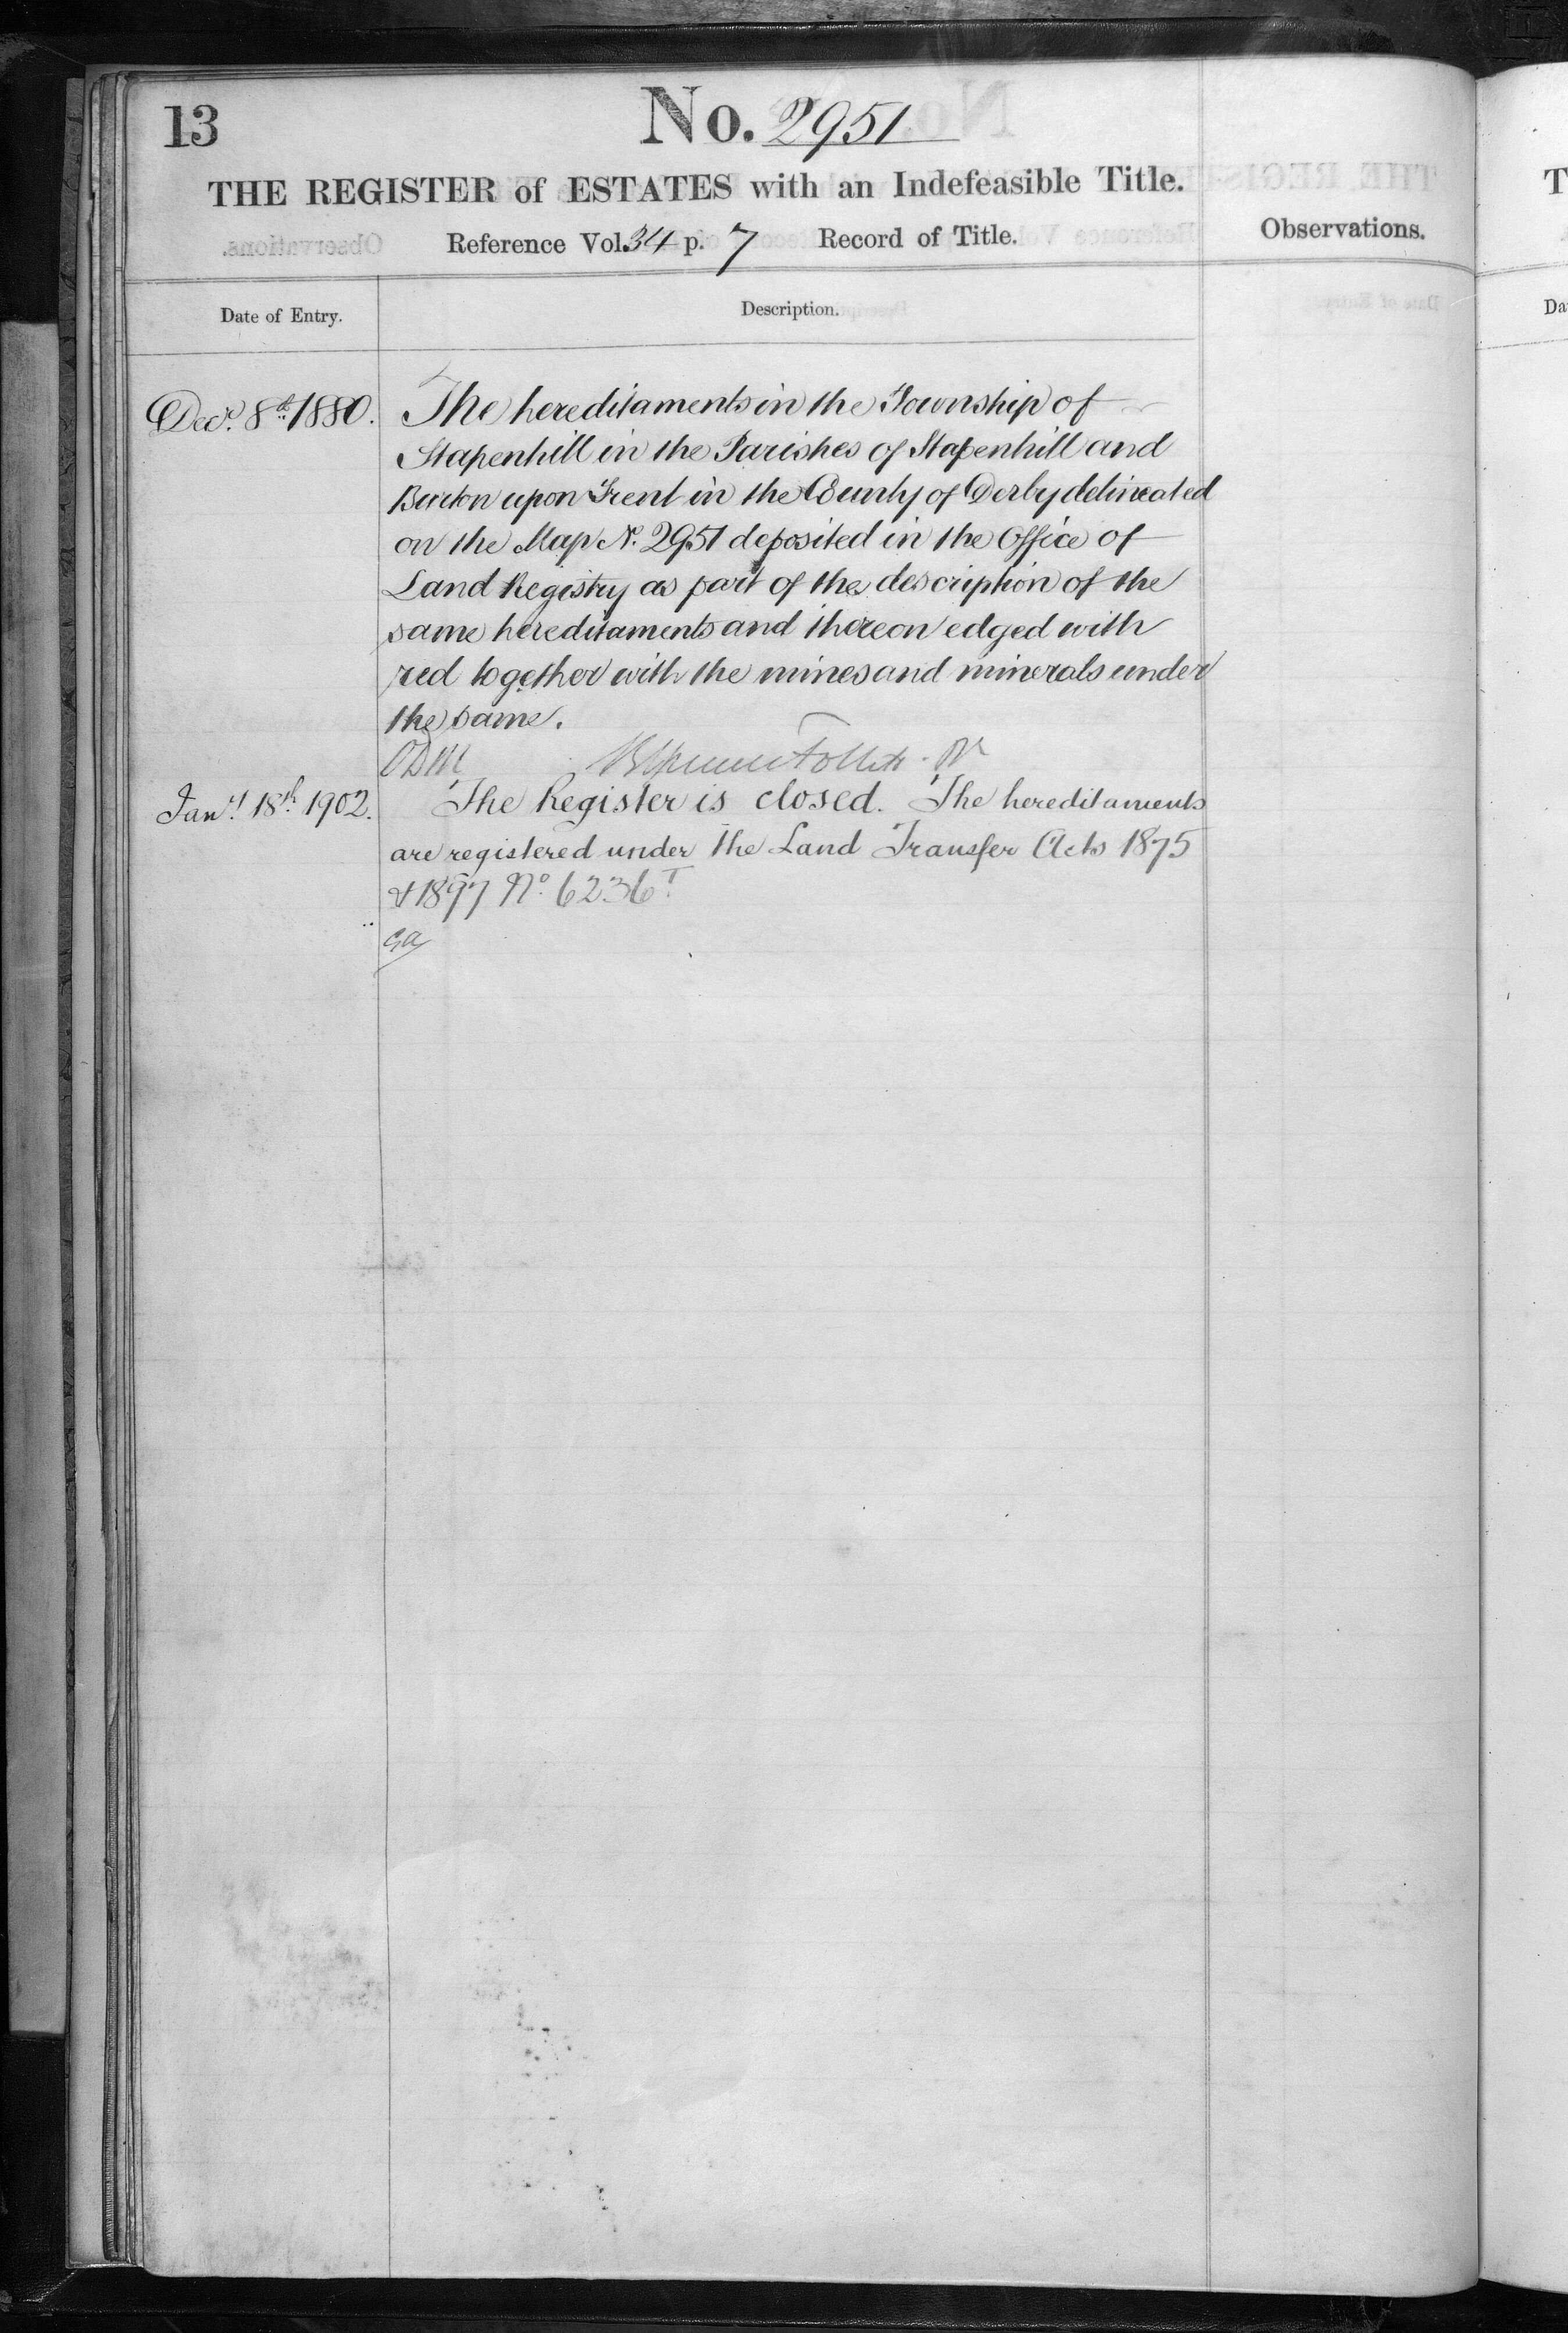 13
No. 2951
THE REGISTER of ESTATES with an Indefeasible Title.
Reference Vol. 34 p. 7 Record of Title.
Observations.
Date of Entry.
Description.
Decr. 8th 1880. The hereditaments in the Township of
Stapenhill in the Parishes of Stapenhill and
Burton upon Trent in the County of Derby delineated
on the Map No. 2951 deposited in the Office of
Land Registry as part of the description of the
same hereditaments and thereon edged with
red together with the mines and minerals under
the same.
ODM Follett
Jany. 18th 1902. The Register is closed. The hereditaments
are registered under the Land Transfer Acts 1875
& 1897 No. 6236T.
T
Da